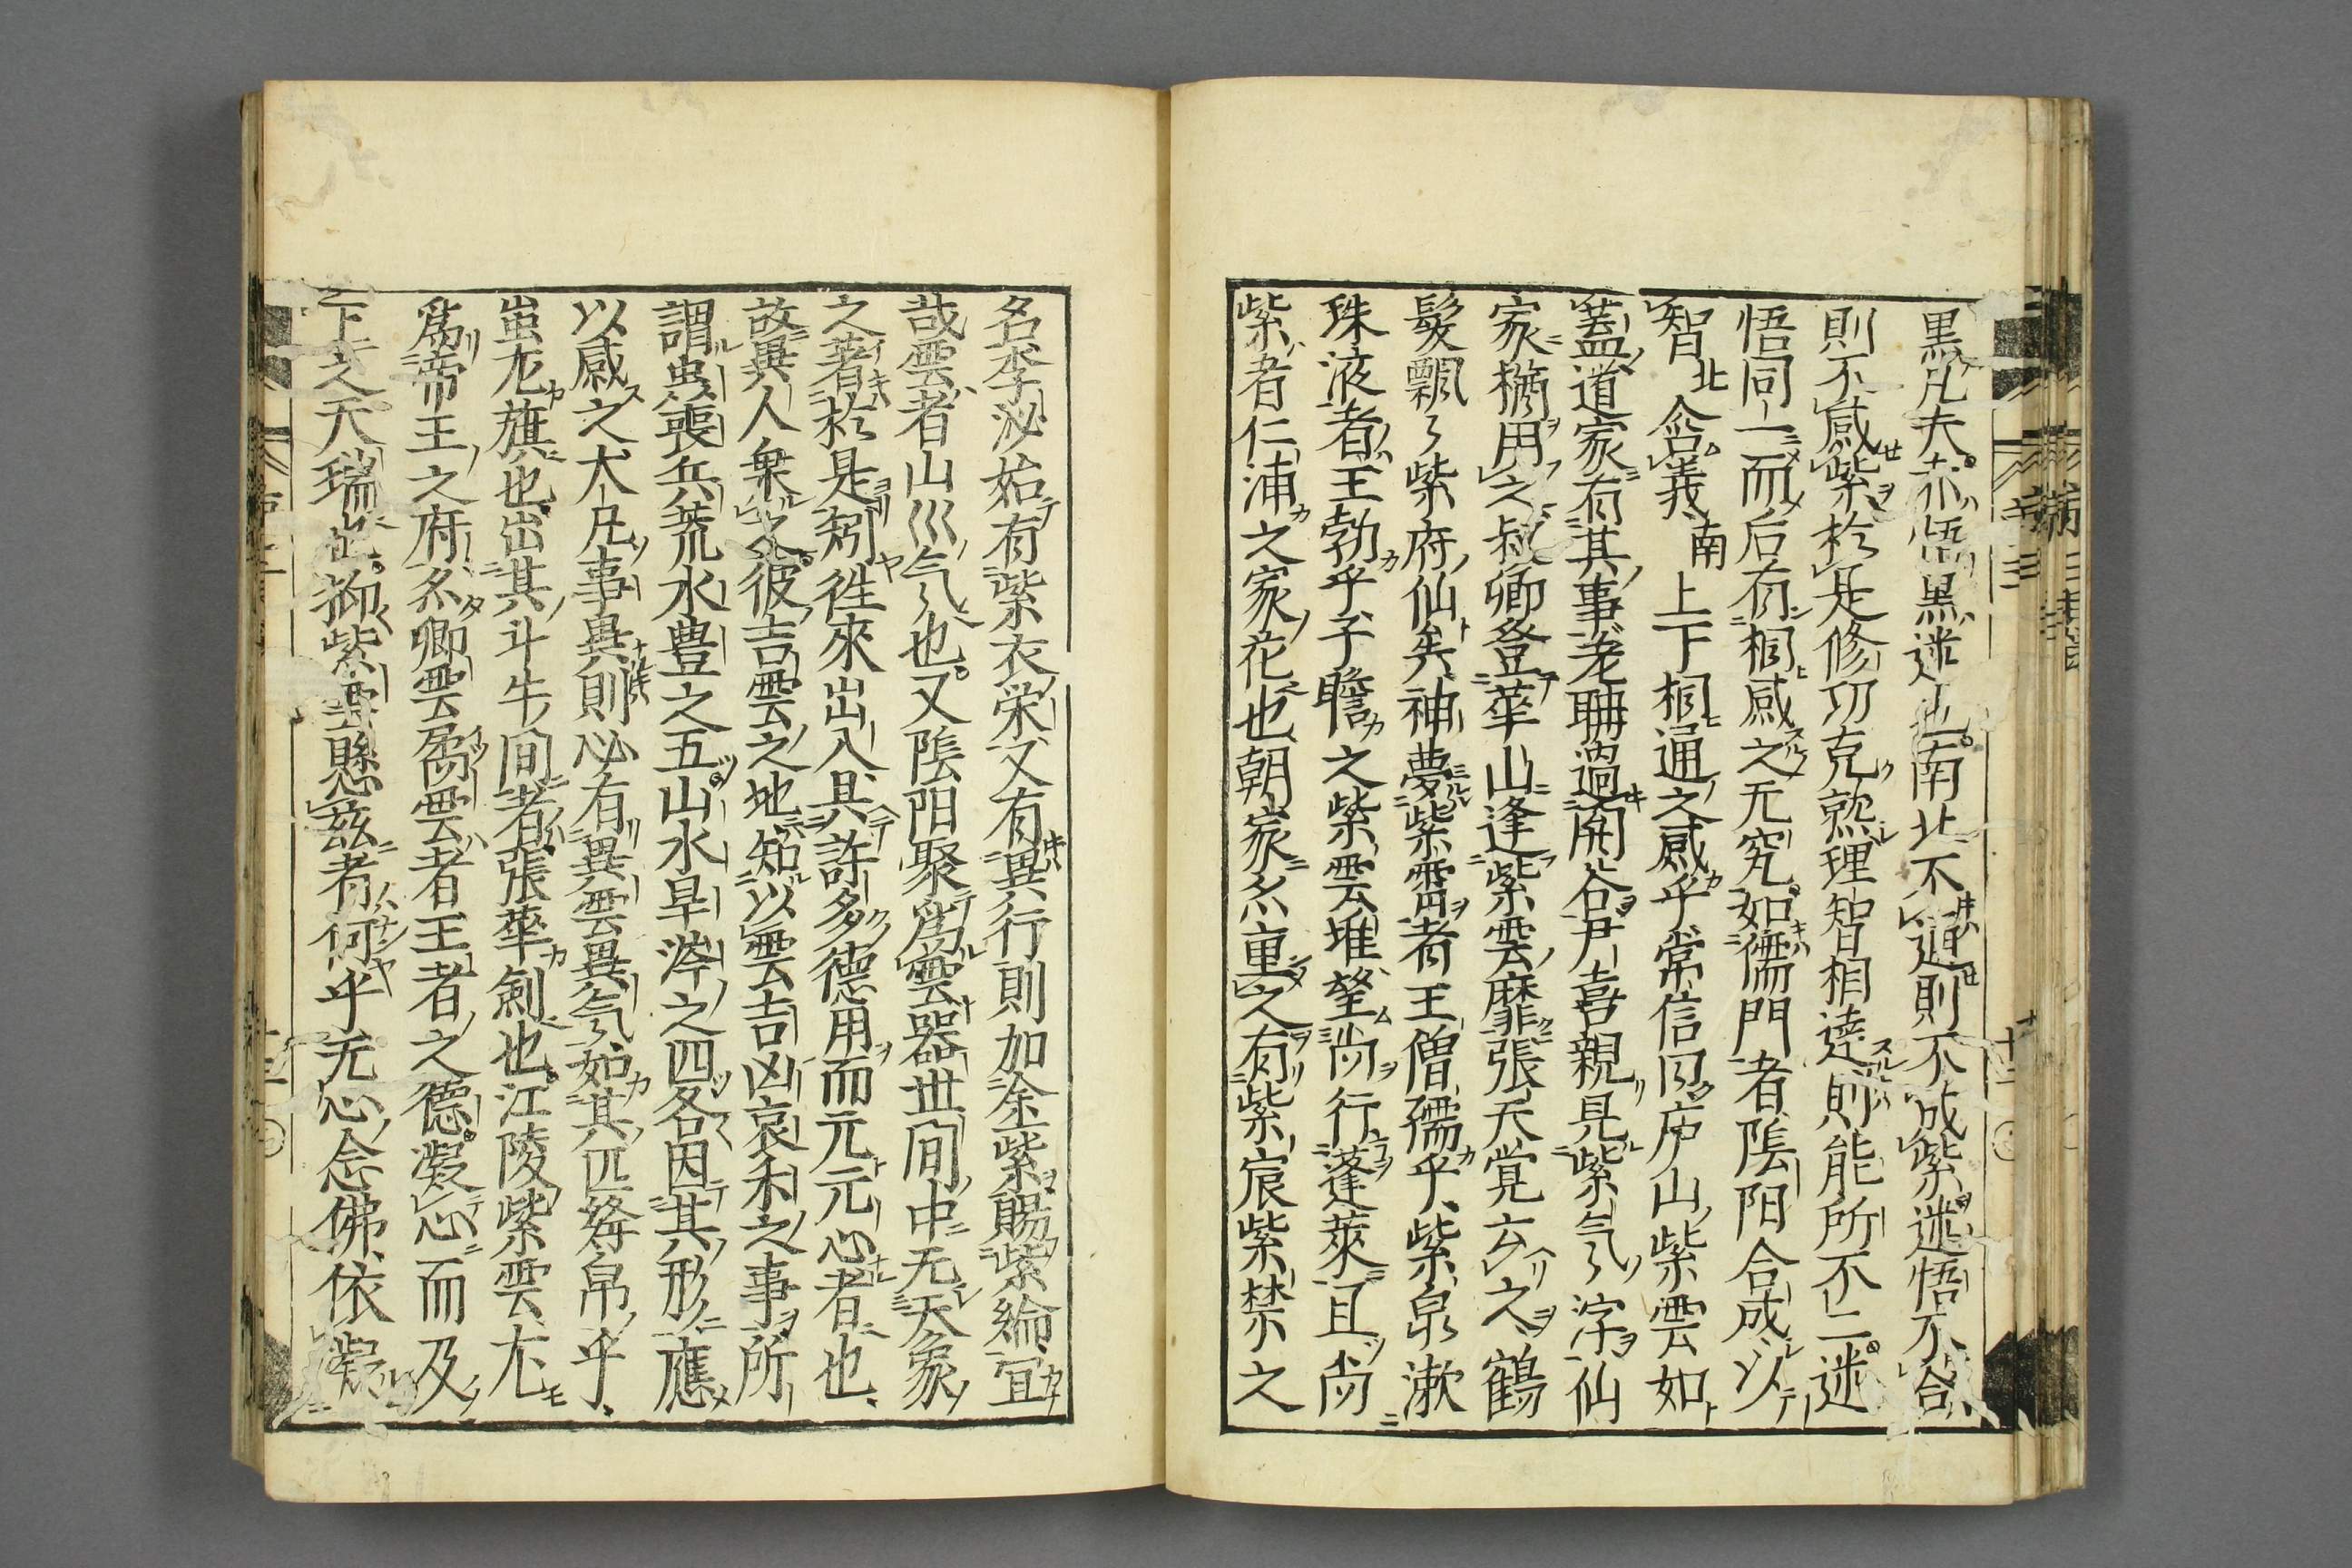 黒凡夫赤悟黒迷也南北不通則不成紫迷悟不合
則不感紫於是修功克熟理智相達則能所不二迷
悟同一而后有相感之无究如儒門者陰阳合成以
智北含義南上下相通之感乎常信因庐山紫雲如
蓋道家有其事老聃過関谷尹喜親見紫气字仙
家猶用之叔卿登華山逢紫雲靡張天覚云之鶴
髪飄々紫府仙矣神夢紫霄者王僧孺乎紫泉漱
珠液者王勃乎子瞻之紫雲堆望尚行蓬萊且尚
紫者仁浦之家花也朝家亦重之有紫宸紫禁之
名李泌始有紫衣栄又有異行則加金紫賜紫綸宜
哉雲者山巛气也又陰阳聚為雲器世间中无天象
之著於是矧徃來出入具許多德用而元元心者也
故異人衆之彼吉雲之地知以雲吉凶哀禾之事所
謂虫喪兵荒水豊之五山水旱渉之四各因其形應
以感之大凡事異則必有異雲異气如其匹夅帛乎
蚩尤旗也出其斗牛间者張華劍也江陵紫雲尤
為帝王之府亦卿雲矞雲者王者之德凝心而及
下之天瑞也抑紫雲懸兹者何乎无心念佛依凝